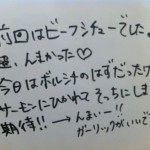 前回はビーフシチューでした。
超、んまかった♡
今日はボルシチのはずだったワ
サーモンにひかれてそっちにしま
期待!! → んまいー!!
ガーリックがいいで